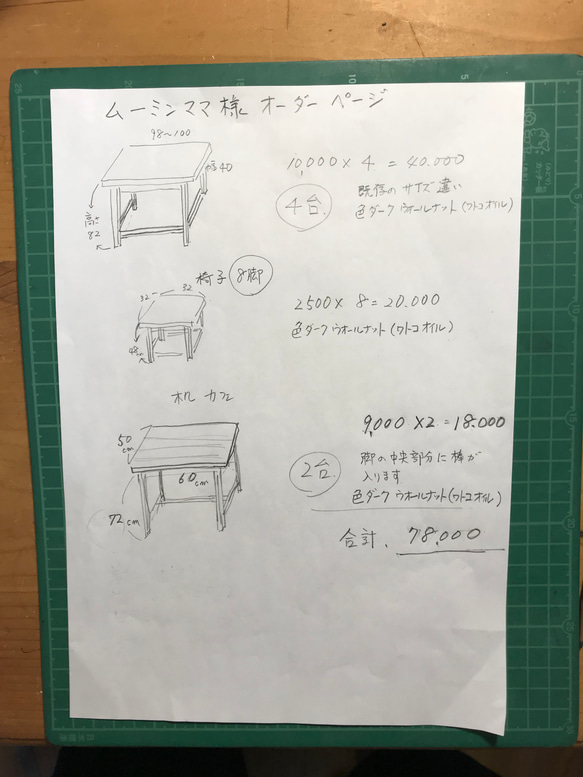 ムーミンママ様 オーダーページ
98~100
巾40
高さ
82
10,000 × 4 = 40.000
4台.
既存のサイズ違い
色ダークウオールナット(ワトコオイル)
椅子 8脚
32 32
2500 × 8 = 20.000
色ダークウオールナット(ワトコオイル)
机 カフェ
50
cm
60cm
72cm
9,000 × 2 = 18.000
2台.
脚の中央部分に棒が
入ります
色ダークウオールナット(ワトコオイル)
合計. 78,000